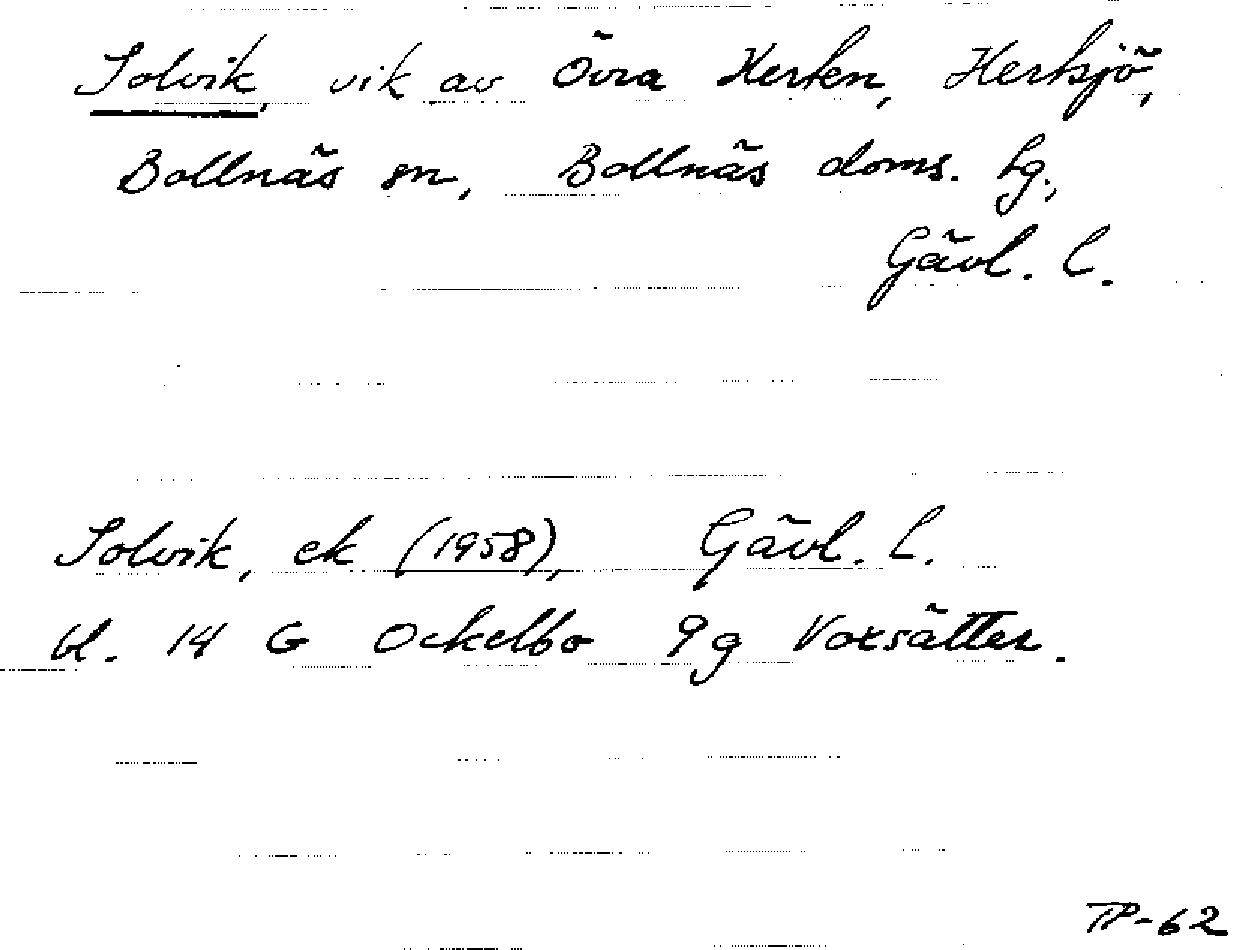 Solvik, vik av Övra Herken, Herksjö,
Bollnäs sn, Bollnäs doms. hg.,
Gävl. l.
Solvik, ek (1958), Gävl. l.
bl. 14 G Ockelbo 9g Voxsätter.
TP-62